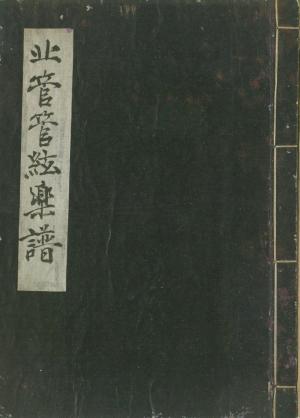 北管管絃樂譜